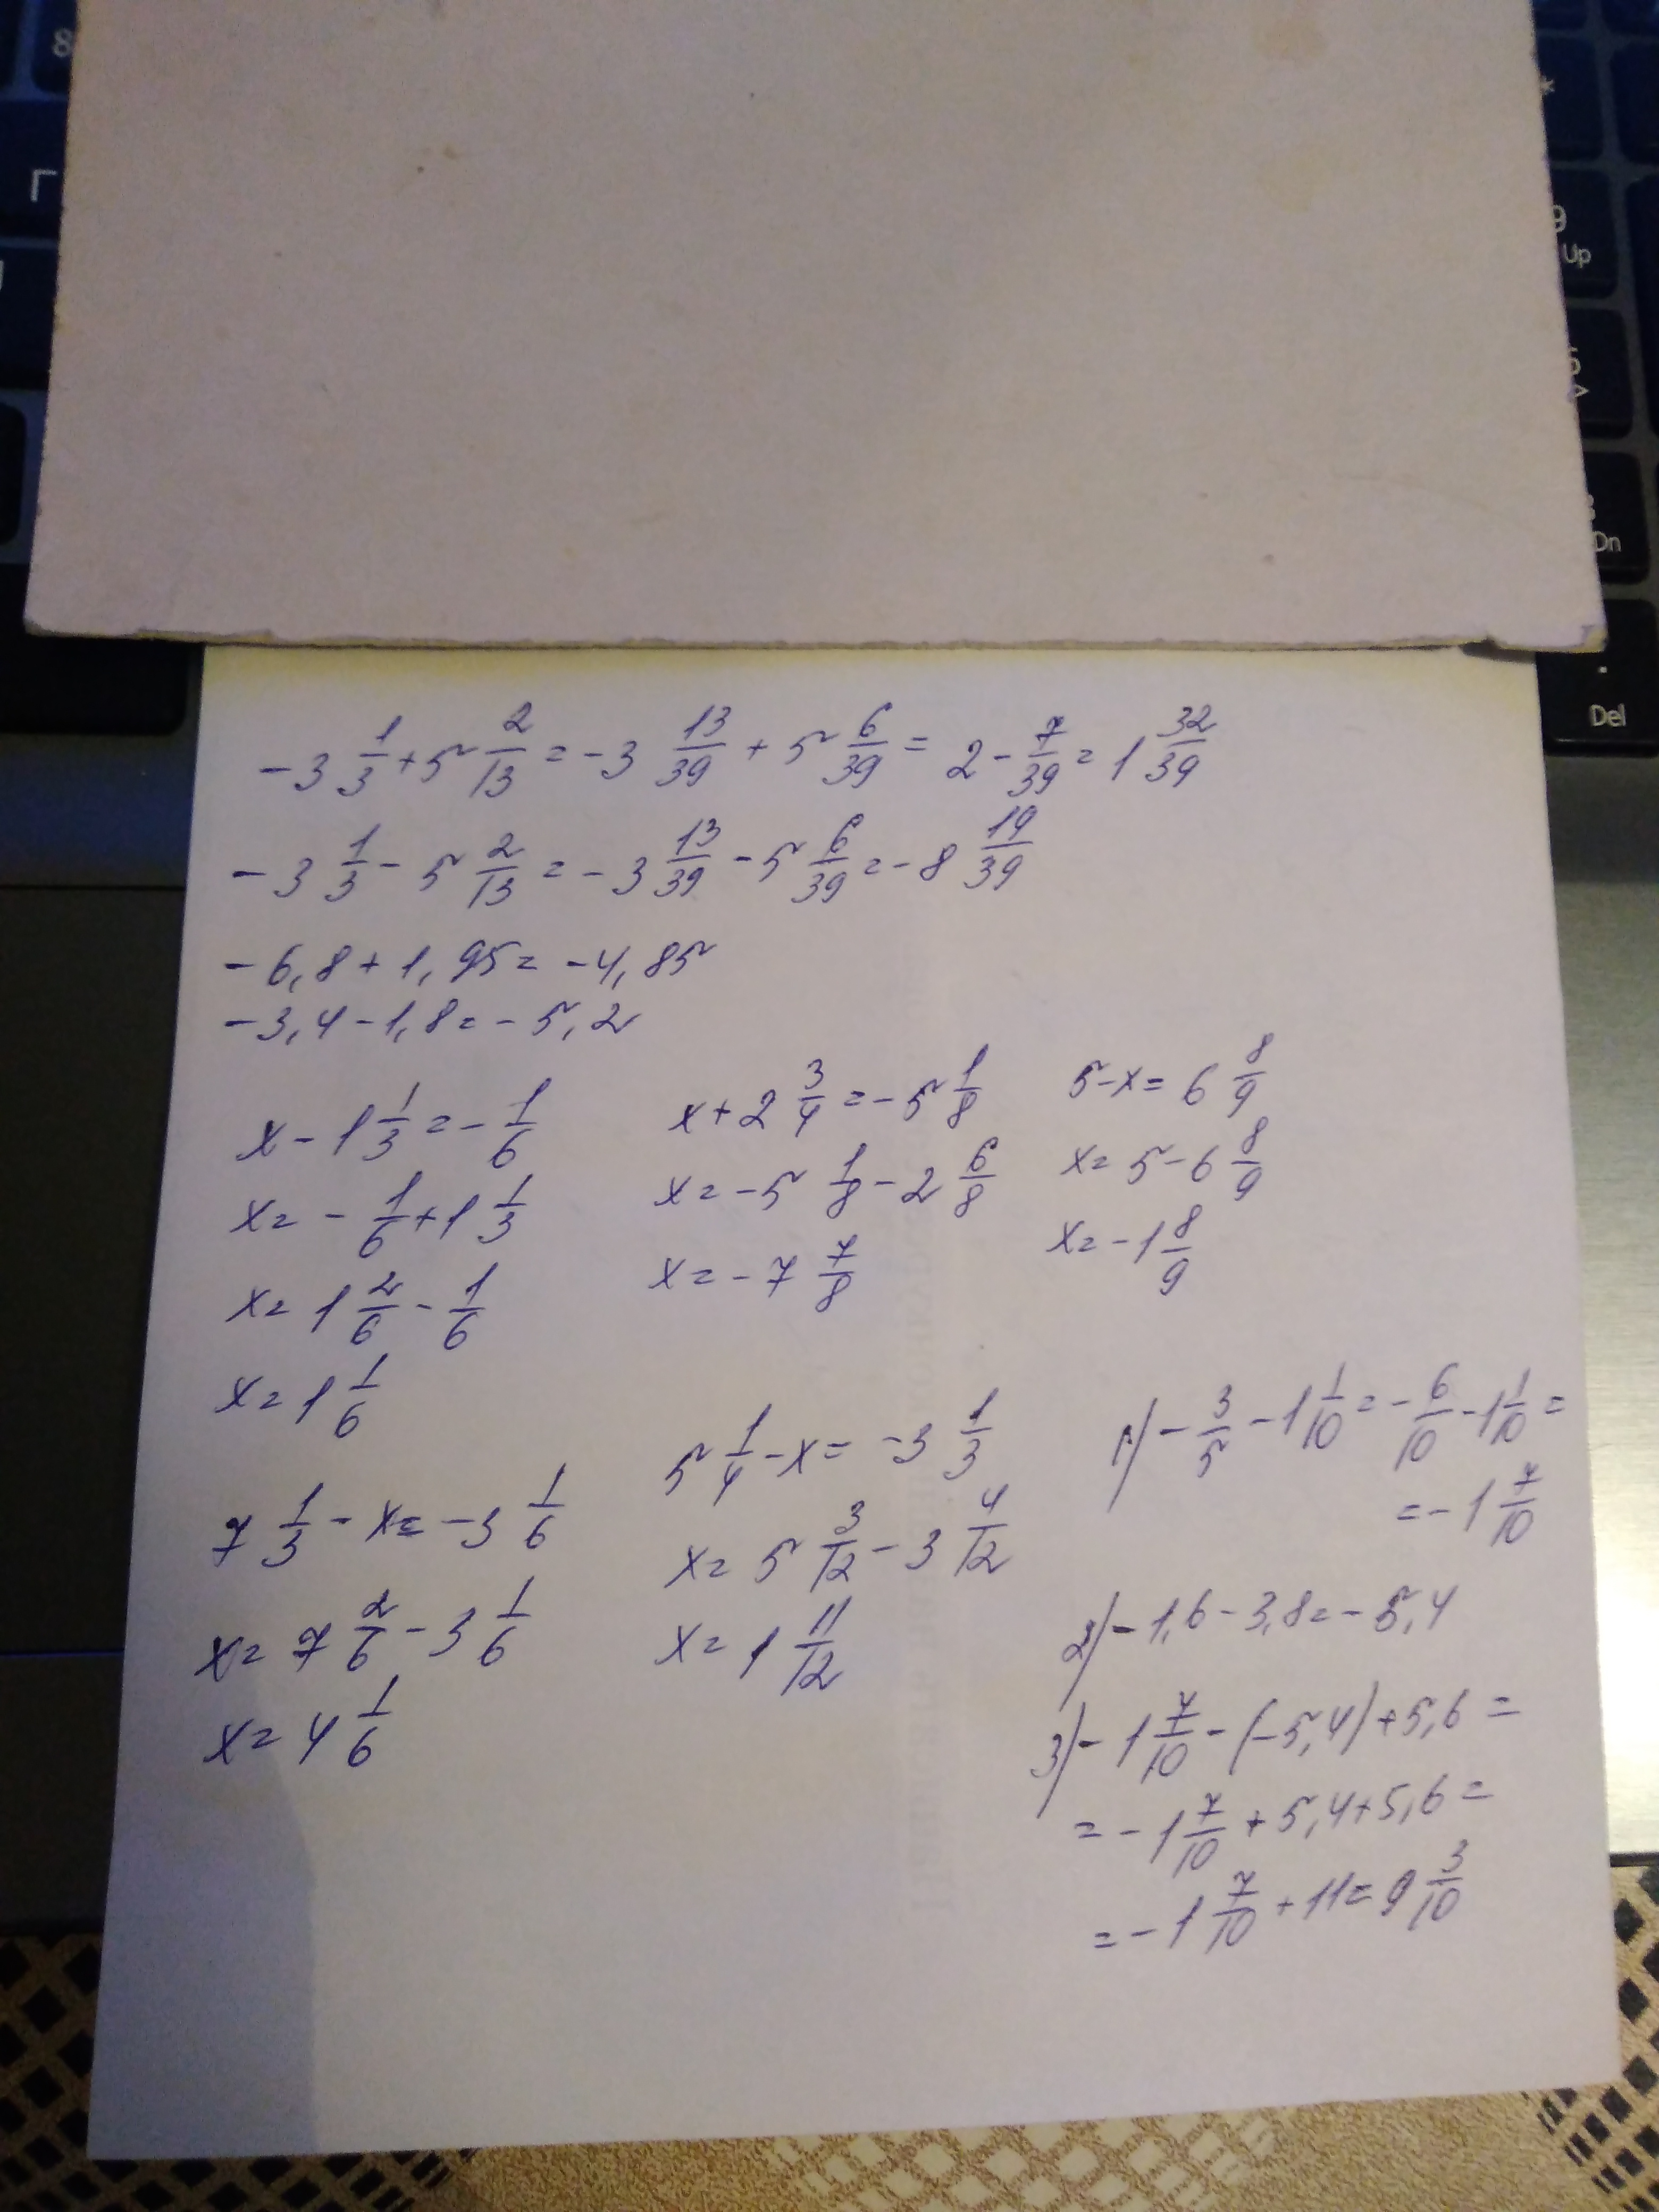 -3 1/3 + 5 2/13 = -3 13/39 + 5 6/39 = 2 - 7/39 = 1 32/39
-3 1/3 - 5 2/13 = -3 13/39 - 5 6/39 = -8 19/39
-6,8 + 1,95 = -4,85
-3,4 - 1,8 = -5,2
x - 1 1/3 = - 1/6
x = - 1/6 + 1 1/3
x = 1 2/6 - 1/6
x = 1 1/6
x + 2 3/4 = -5 1/8
x = -5 1/8 - 2 6/8
x = -7 7/8
5 - x = 6 8/9
x = 5 - 6 8/9
x = -1 8/9
7 1/3 - x = -3 1/6
x = 7 2/6 - 3 1/6
x = 4 1/6
5 1/4 - x = -3 1/3
x = 5 3/12 - 3 4/12
x = 1 11/12
1) - 3/5 - 1 1/10 = - 6/10 - 1 1/10 =
= -1 7/10
2) -1,6 - 3,8 = -5,4
3) -1 7/10 - (-5,4) + 5,6 =
= -1 7/10 + 5,4 + 5,6 =
= -1 7/10 + 11 = 9 3/10
8
Г
*
9
Up
Dn
.
Del